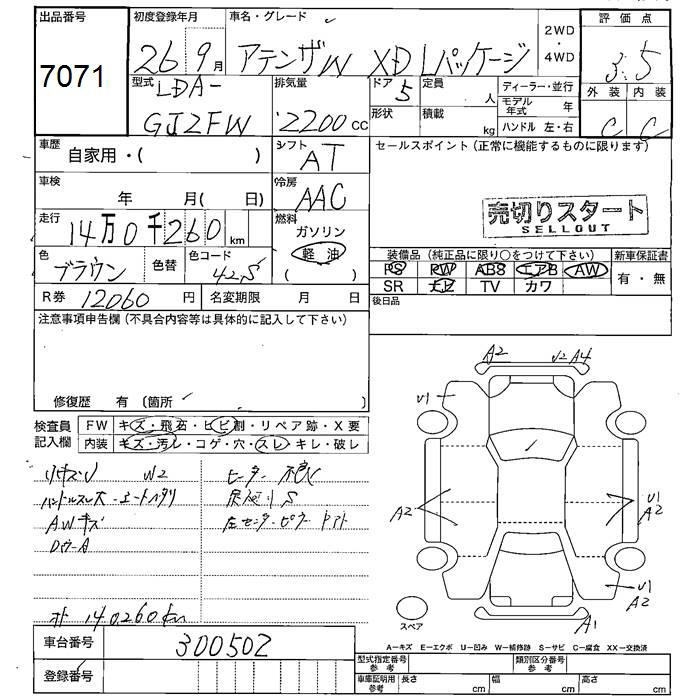 出品番号
7071
初度登録年月
26 9月
車名・グレード
アテンザW XD Lパッケージ
2WD
・
4WD
評価点
3.5
外装 内装
C C
型式
LDA-
GJ2FW
排気量
2200cc
ドア
5
定員
人
形状
積載
kg
ディーラー・並行
モデル年式 年
ハンドル 左・右
車歴
自家用・( )
シフト
AT
車検
年 月( 日)
冷房
AAC
走行
14万0千260km
燃料
ガソリン
軽油
( )
色
ブラウン
色替
色コード
42S
R券 12060円
名変期限 月 日
セールスポイント(正常に機能するものに限ります)
売切りスタート
SELLOUT
装備品(純正品に限り○をつけて下さい)
新車保証書
PS PW ABS エアB AW
SR ナビ TV カワ
有・無
後日品
注意事項申告欄(不具合内容等は具体的に記入して下さい)
修復歴 有(箇所 )
検査員
記入欄
FW キズ・飛石・ヒビ割・リペア跡・X要
内装 キズ・汚レ・コゲ・穴・スレ・キレ・破レ
W2
ヒーター不良
ハンドルスレ大・シートヘタリ
AWキズ
左センターピラー
オド 140,260km
A2
U2 A4
U1
A2
U1
A2
U1
A2
A1
スペア
A−キズ E−エクボ U−凹み W−補修跡 S−サビ C−腐食 XX−交換済
車台番号 300502
登録番号
型式指定番号
参考
類別区分番号
参考
車庫証明用
参考
長さ cm
幅 cm
高さ cm